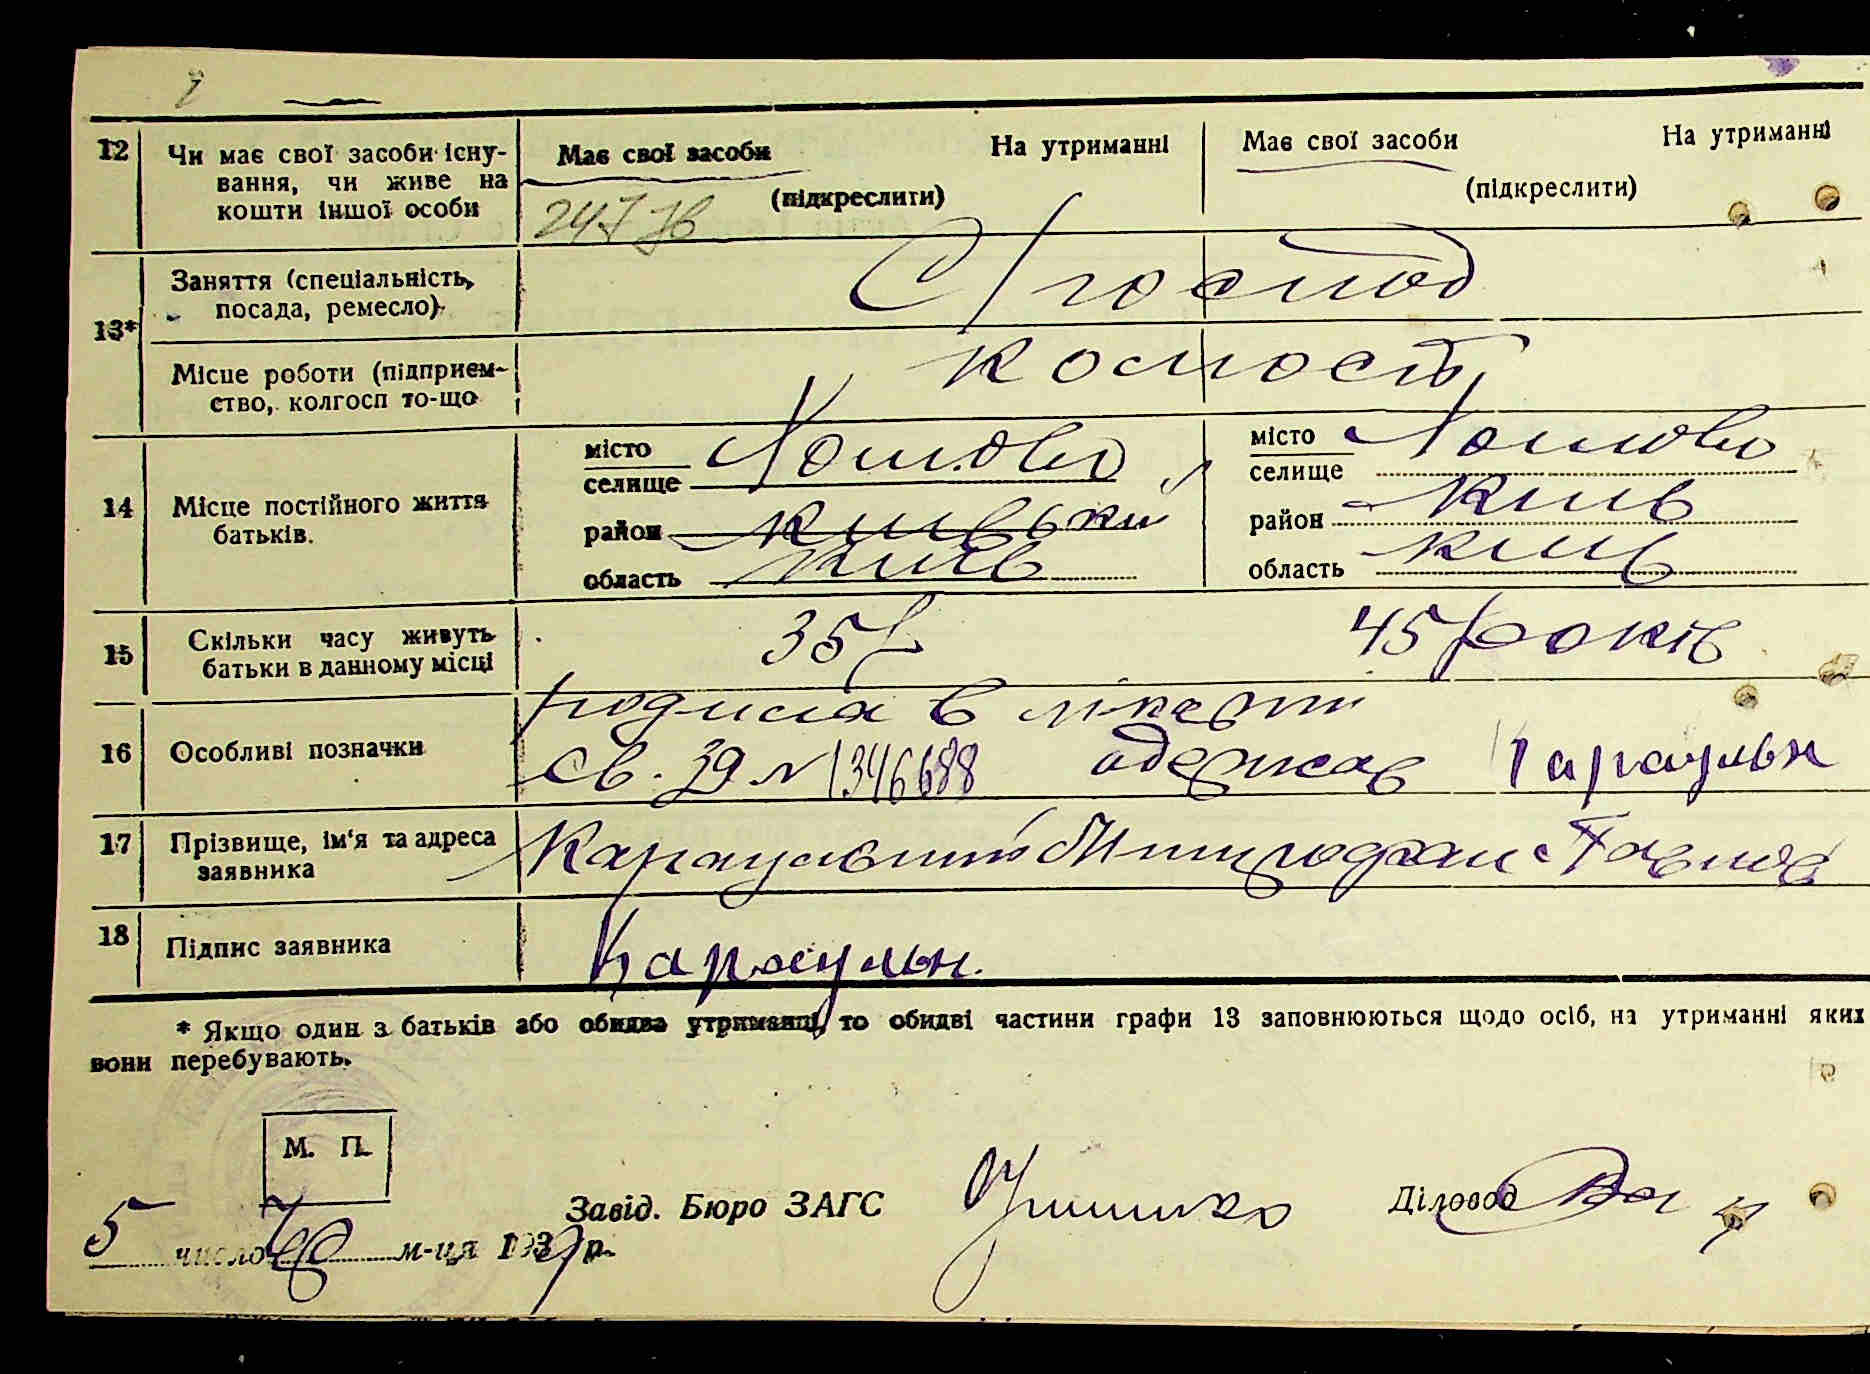 12 Чи має свої засоби існу-
вання, чи живе на
кошти іншої особи
Має свої засоби На утриманні
(підкреслити)
247
Має свої засоби На утриманні
(підкреслити)
13* Заняття (спеціальність,
посада, ремесло)
С/господ
Місце роботи (підприєм-
ство, колгосп то-що
14 Місце постійного життя
батьків.
місто
селище
район Київський
область Київ
місто
селище
район Київ
область Київ
15 Скільки часу живуть
батьки в данному місці
35 45 років
16 Особливі позначки
св. 39 № 1346688 одержав Караульн
17 Прізвище, ім'я та адреса
заявника
Караульний
18 Підпис заявника
Караульн.
* Якщо один з батьків або обидва утриманці, то обидві частини графи 13 заповнюються щодо осіб, на утриманні яких
вони перебувають.
М. П.
Завід. Бюро ЗАГС
Діловод
5 число м-ця 193 р.